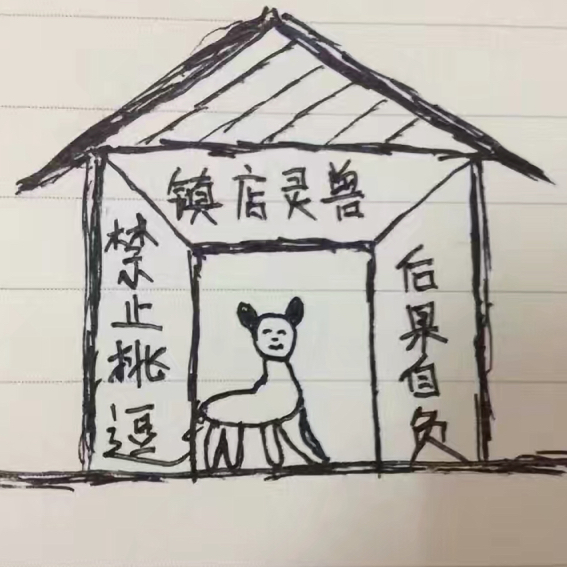 镇店灵兽
禁止挑逗
后果自负